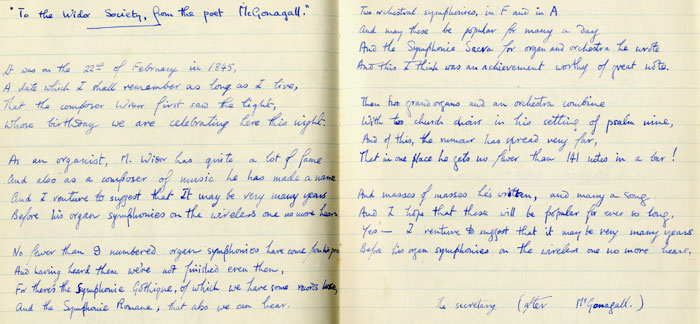 "To the Widor Society, from the poet McGonagall."
It was on the 22nd of February in 1845,
A date which I shall remember as long as I live,
That the composer Widor first saw the light,
Whose birthday we are celebrating here this night.
As an organist, M. Widor has quite a lot of fame
And also as a composer of music he has made a name
And I venture to suggest that It may be very many years
Before his organ symphonies on the wireless one no more hears
No fewer than 9 numbered organ symphonies have come from his pen
And having heard them we're not finished even then,
For there's the Symphonie Gothique, of which we have some records here,
And the Symphonie Romane, that also we can hear.
Two orchestral symphonies, in F and in A
And may these be popular for many a day
And the Symphonie Sacra for organ and orchestra he wrote
And this I think was an achievement worthy of great note.
Then two grand organs and an orchestra combine
With two church choirs in his setting of psalm nine,
And of this, the rumour has spread very far,
That in one place he gets no fewer than 141 notes in a bar!
And masses of masses he's written, and many a song
And I hope that these will be popular for ever so long,
Yes — I venture to suggest that it may be very many years
Before his organ symphonies on the wireless one no more hears.
The secretary (after McGonagall.)